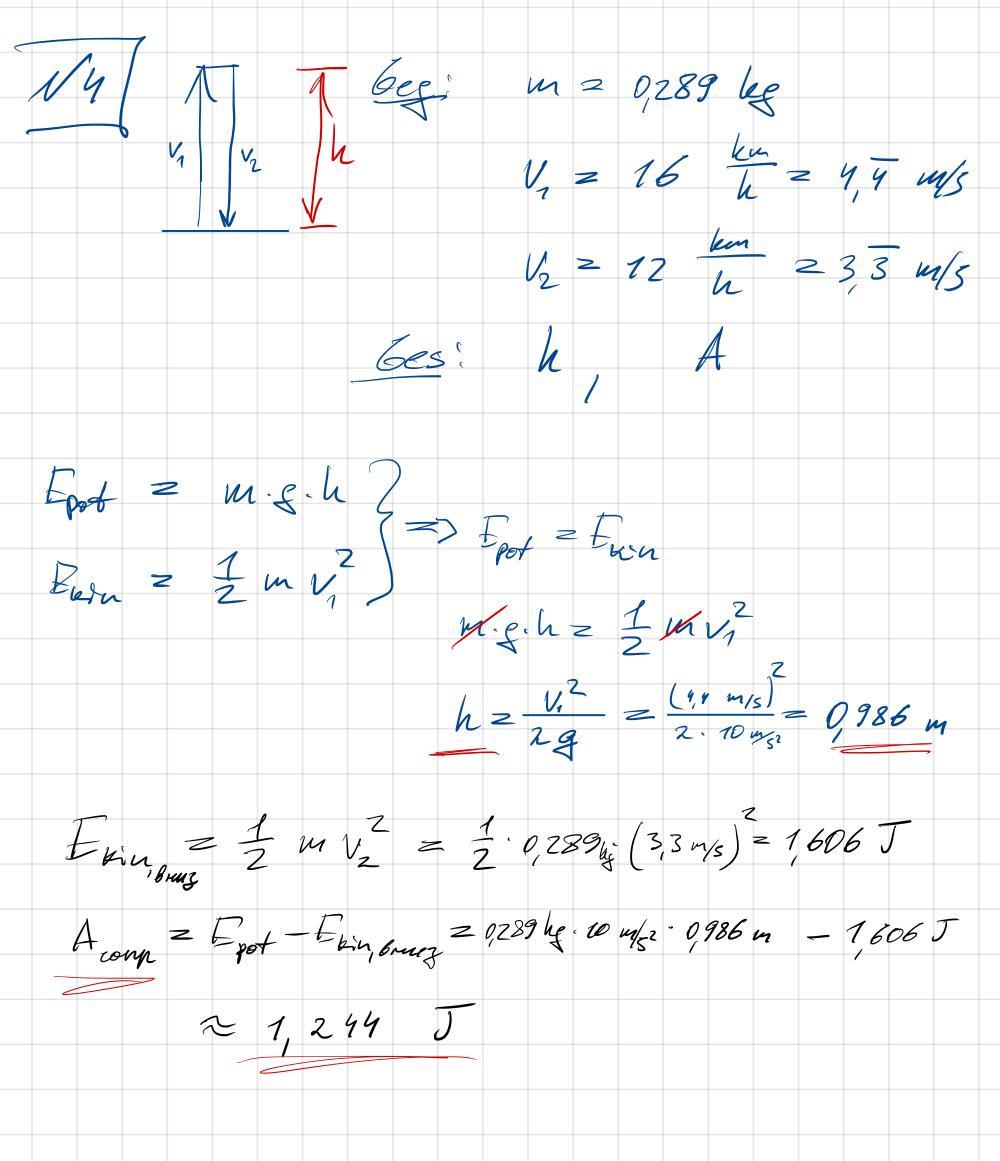 №4
v₁ v₂ h
Geg: m = 0,289 kg
V₁ = 16 km/h = 4,4̅ m/s
V₂ = 12 km/h = 3,3̅ m/s
Ges: h, A
E_pot = m·g·h
E_kin = 1/2 m v₁² } => E_pot = E_kin
m·g·h = 1/2 m v₁²
h = v₁²/2g = (4,4 m/s)²/2·10 m/s² = 0,986 m
E_kin,вниз = 1/2 m v₂² = 1/2 · 0,289 kg (3,3 m/s)² = 1,606 J
A_сопр = E_pot − E_kin,вниз = 0,289 kg · 10 m/s² · 0,986 m − 1,606 J
≈ 1,244 J